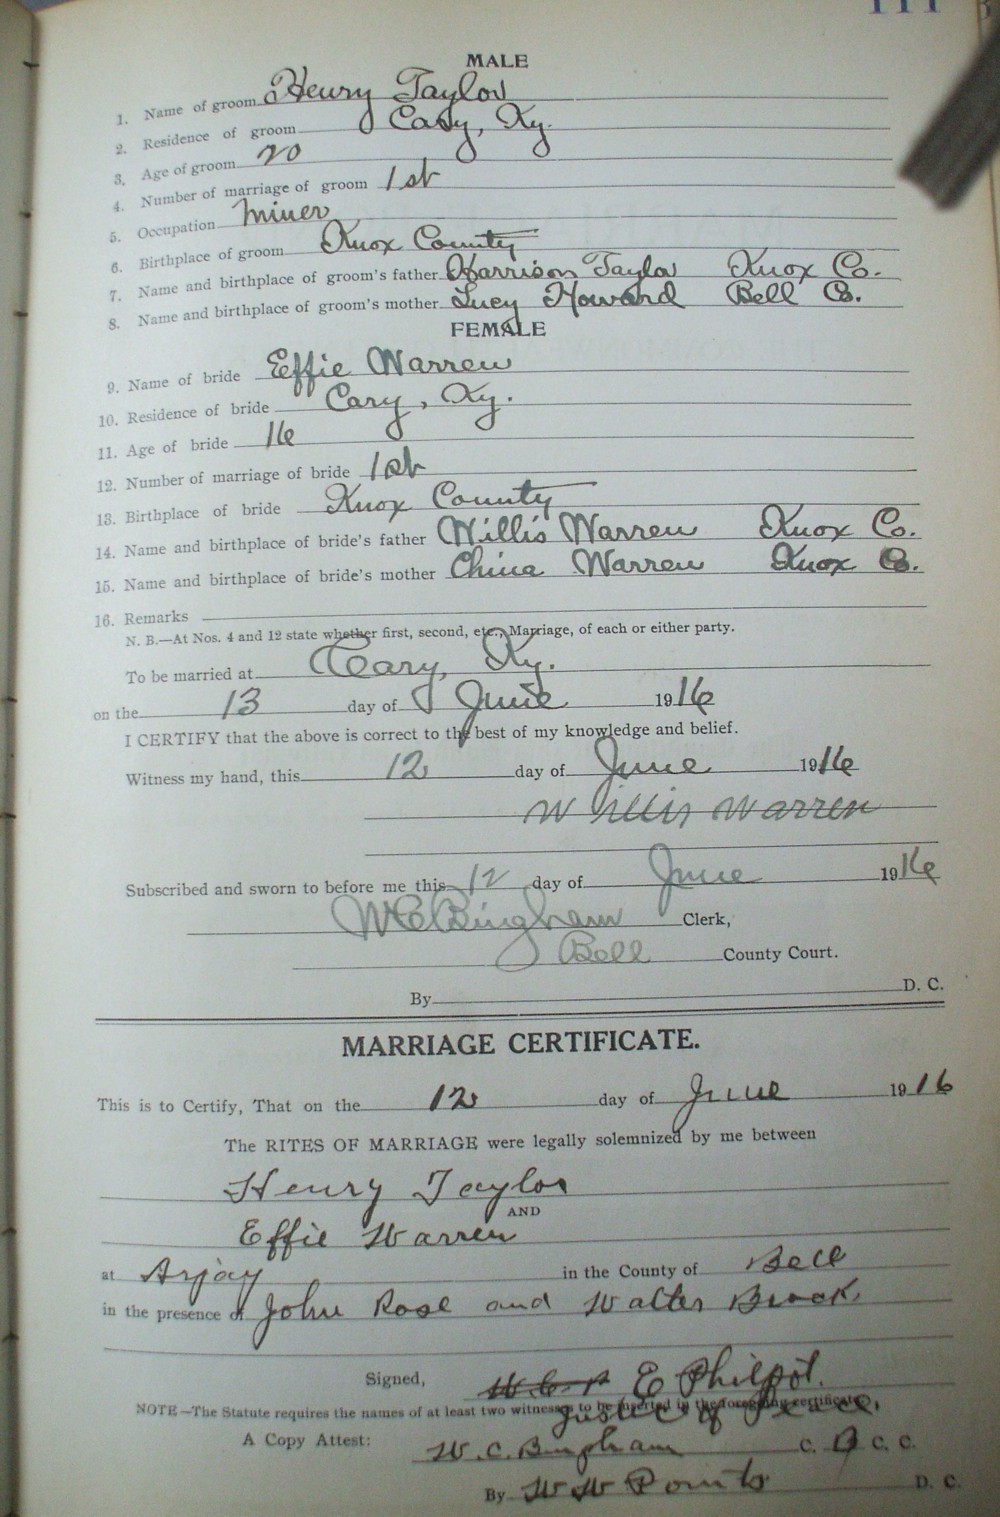 111
MALE
1. Name of groom Henry Taylor
2. Residence of groom Cary, Ky.
3. Age of groom 20
4. Number of marriage of groom 1st
5. Occupation Miner
6. Birthplace of groom Knox County
7. Name and birthplace of groom's father Harrison Taylor Knox Co.
8. Name and birthplace of groom's mother Lucy Howard Bell Co.
FEMALE
9. Name of bride Effie Warren
10. Residence of bride Cary, Ky.
11. Age of bride 16
12. Number of marriage of bride 1st
13. Birthplace of bride Knox County
14. Name and birthplace of bride's father Willis Warren Knox Co.
15. Name and birthplace of bride's mother China Warren Knox Co.
16. Remarks
N. B.—At Nos. 4 and 12 state whether first, second, etc., Marriage, of each or either party.
To be married at Cary, Ky.
on the 13 day of June 1916
I CERTIFY that the above is correct to the best of my knowledge and belief.
Witness my hand, this 12 day of June 1916
Willis Warren
Subscribed and sworn to before me this 12 day of June 1916
W C Bingham Clerk,
Bell County Court.
By D. C.
MARRIAGE CERTIFICATE.
This is to Certify, That on the 12 day of June 1916
The RITES OF MARRIAGE were legally solemnized by me between
Henry Taylor
AND
Effie Warren
at Arjay in the County of Bell
in the presence of John Rose and Walter Brock.
Signed, E Philpot.
NOTE—The Statute requires the names of at least two witnesses to be inserted in the foregoing certificate.
Justice of Peace,
A Copy Attest: W. C. Bingham C. B C. C.
By W W Points D. C.